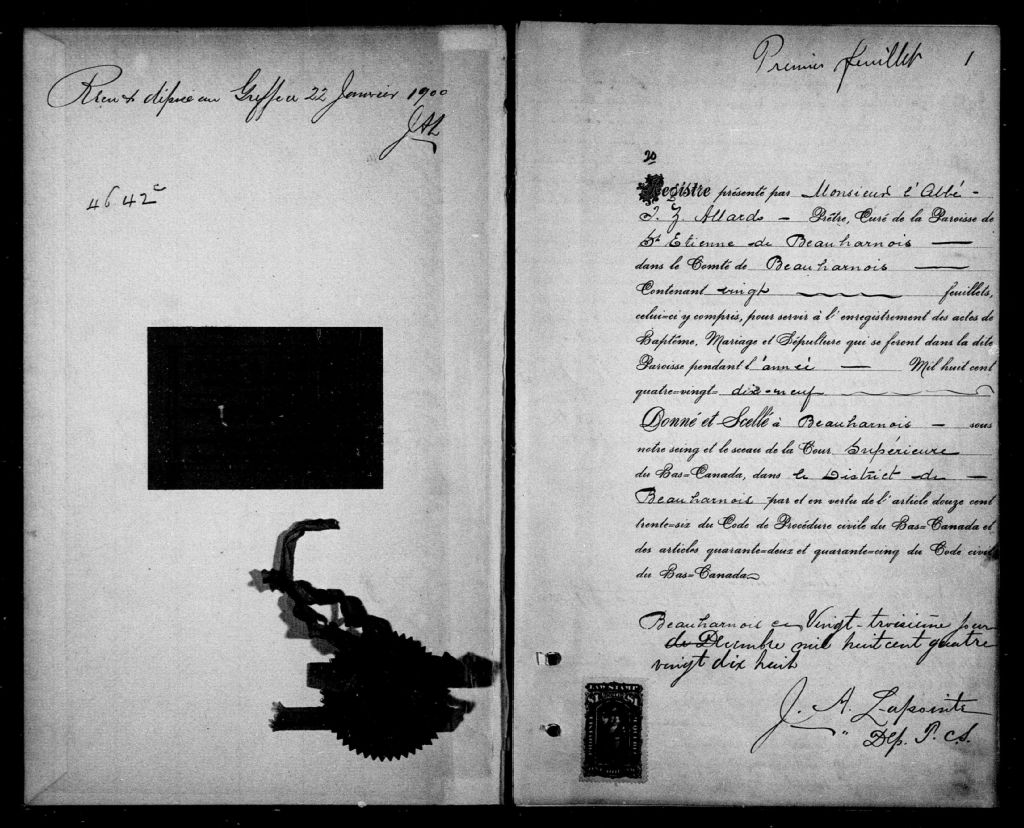 Reçu & déposé au Greffe ce 22 Janvier 1900
JAL
4642c
Premier feuillet 1
20
Registre présenté par Monsieur l'Abbé -
J. Z. Allard - Prêtre, Curé de la Paroisse de
St Etienne de Beauharnois —
dans le Comté de Beauharnois —
Contenant vingt feuillets,
celui=ci y compris, pour servir à l'enregistrement des actes de
Baptême, Mariage et Sépulture qui se feront dans la dite
Paroisse pendant l'année — Mil huit cent
quatre=vingt= dix-neuf
Donné et Scellé à Beauharnois — sous
notre seing et le sceau de la Cour Supérieure
du Bas=Canada, dans le District de —
Beauharnois par et en vertu de l'article douze cent
trente=six du Code de Procédure civile du Bas=Canada et
des articles quarante=deux et quarante=cinq du Code civil
du Bas=Canada
Beauharnois ce Vingt-troisième jour
de Décembre mil huit cent quatre
vingt dix huit
J. A. Lapointe
Dép. P. C. S.
LAW STAMP
$1 $1
ONE DOLLAR